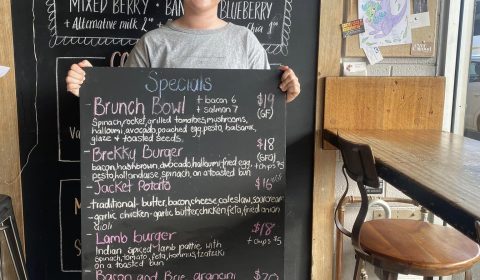 MIXED BERRY • BAN BLUEBERRY
+ Alternative milk 2
Chia 1
Specials
Brunch Bowl + bacon 6 $19
+ salmon 7 (GF)
Spinach, rocket, grilled tomatoes, mushrooms,
halloumi, avocado, poached egg, pesto, balsamic
glaze & toasted seeds.
- BreKKy Burger $18
(GFO)
bacon, hashbrown, avocado, halloumi, fried egg, + chips $5
pesto, hollandaise, spinach, on a toasted bun
- Jacket Potato $16
- traditional - butter, bacon, cheese, coleslaw, sourcream
- garlic chicken - garlic butter, chicken, feta, fried onion
aioli
- Lamb burger $18
+ chips $5
Indian spiced - lamb pattie with
spinach, tomato, feta, hommus, tzatziki
on a toasted bun
Bacon and Brie arancini $20